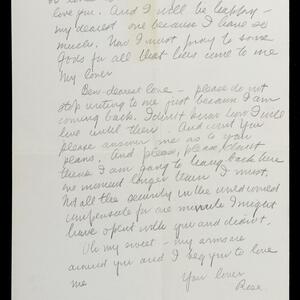 love you. And I will be happy -
my dearest one because I have so
much. Now I must pray to some
Gods for all that lies come to me
my lover
Ben - dearest love - please do not
stop writing to me just because I am
coming back. I don't know how I will
live until then. And won't you
please answer me as to your
plans. And please, please, don't
think I am going to hang back here
one moment longer than I must.
Not all the security in the world would
compensate for one minute I might
have spent with you and didn't.
Oh my sweet - my arms are
around you and I beg you to love
me
Your lover
Rose